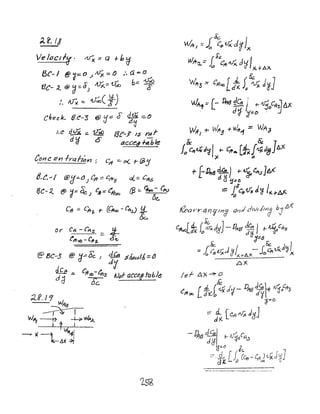 28.18
Velocity: Vx = a + by
BC-1 @ y=0, Vx=0 ∴ a=0
BC-2 @ y=δ, Vx=V∞ b= V∞/δ
∴ Vx = V∞(y/δ)
Check BC-3 @ y=δ dVx/dy = 0
i.e dVx/dy = V∞/δ BC-3 is not acceptable
Concentration: CA = α + βy
B.C.-1 @ y=0, CA = CAs α = CAs
BC-2 @ y=δc, CA = CA∞ β = (CA∞ - CAs)/δc
CA = CAs + (CA∞ - CAs) y/δc
or (CA - CAs)/(CA∞ - CAs) = y/δc
@ BC-3 @ y=δc, dCA/dy should = 0
dCA/dy = (CA∞ - CAs)/δc Not acceptable
28.19
WA3
WA1
WA2
WA4
x
Δx
WA1 = ∫₀^δc CA Vx dy |x
WA2 = ∫₀^δc CA Vx dy |x+Δx
WA3 = CA∞ [d/dx ∫₀^δc Vx dy] Δx
WA4 = [- DAB dCA/dy |y=0 + Vys CAs] Δx
WA1 + WA3 + WA4 = WA2
∫₀^δc CA Vx dy |x + CA∞ [d/dx ∫₀^δc Vx dy] Δx
+ [-DAB dCA/dy |y=0 + Vys CAs] Δx
= ∫₀^δc CA Vx dy |x+Δx
Rearranging and dividing by Δx
CA∞ [d/dx ∫₀^δc Vx dy] - DAB dCA/dy |y=0 + Vys CAs
= (∫₀^δc CA Vx dy |x+Δx - ∫₀^δc CA Vx dy |x)/Δx
let Δx → 0
CA∞ [d/dx ∫₀^δc Vx dy - DAB dCA/dy | + Vys CAs y=0
= d/dx [CA Vx dy]
- DAB dCA/dy |y=0 + Vys CAs
= d/dx [∫₀^δc (CA - CA∞) Vx dy]
258